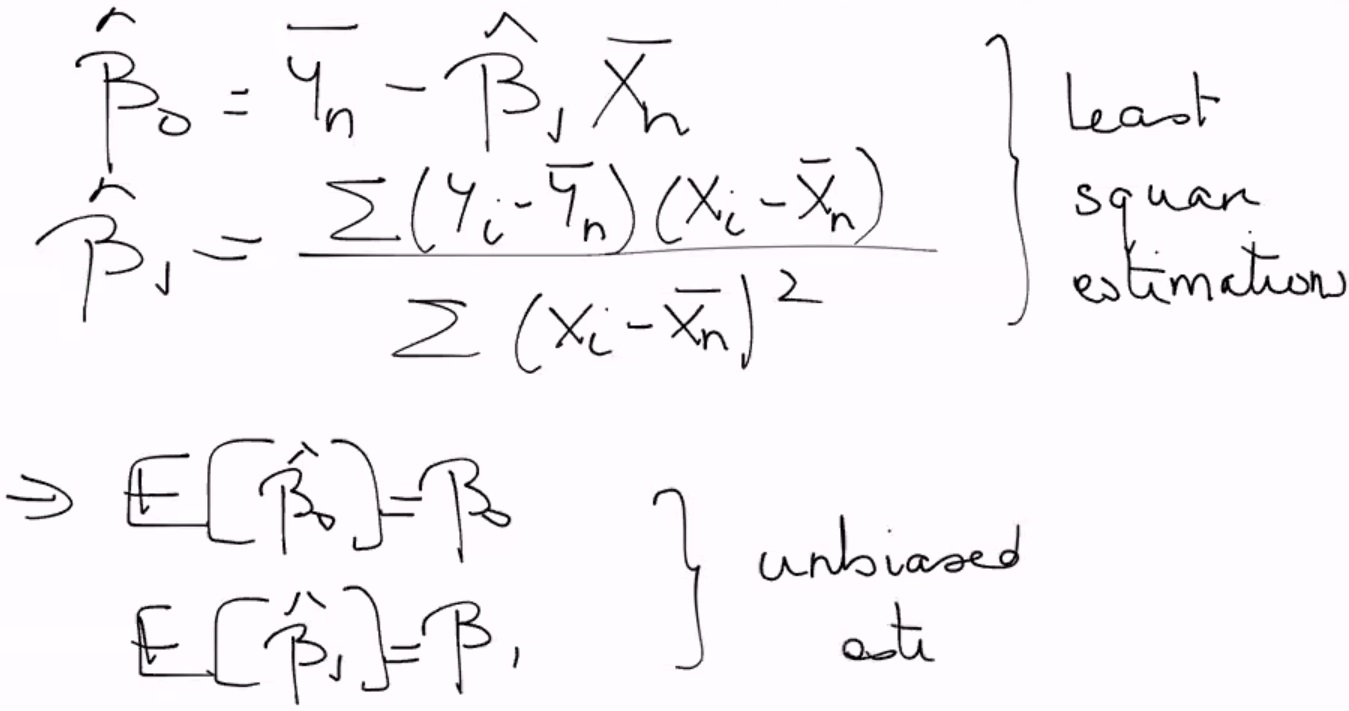 β̂₀ = Ȳₙ - β̂₁ X̄ₙ
β̂₁ = Σ(Yᵢ - Ȳₙ)(Xᵢ - X̄ₙ) / Σ(Xᵢ - X̄ₙ)²
Least
square
estimation
⇒ E[β̂₀] = β₀
E[β̂₁] = β₁
unbiased
esti